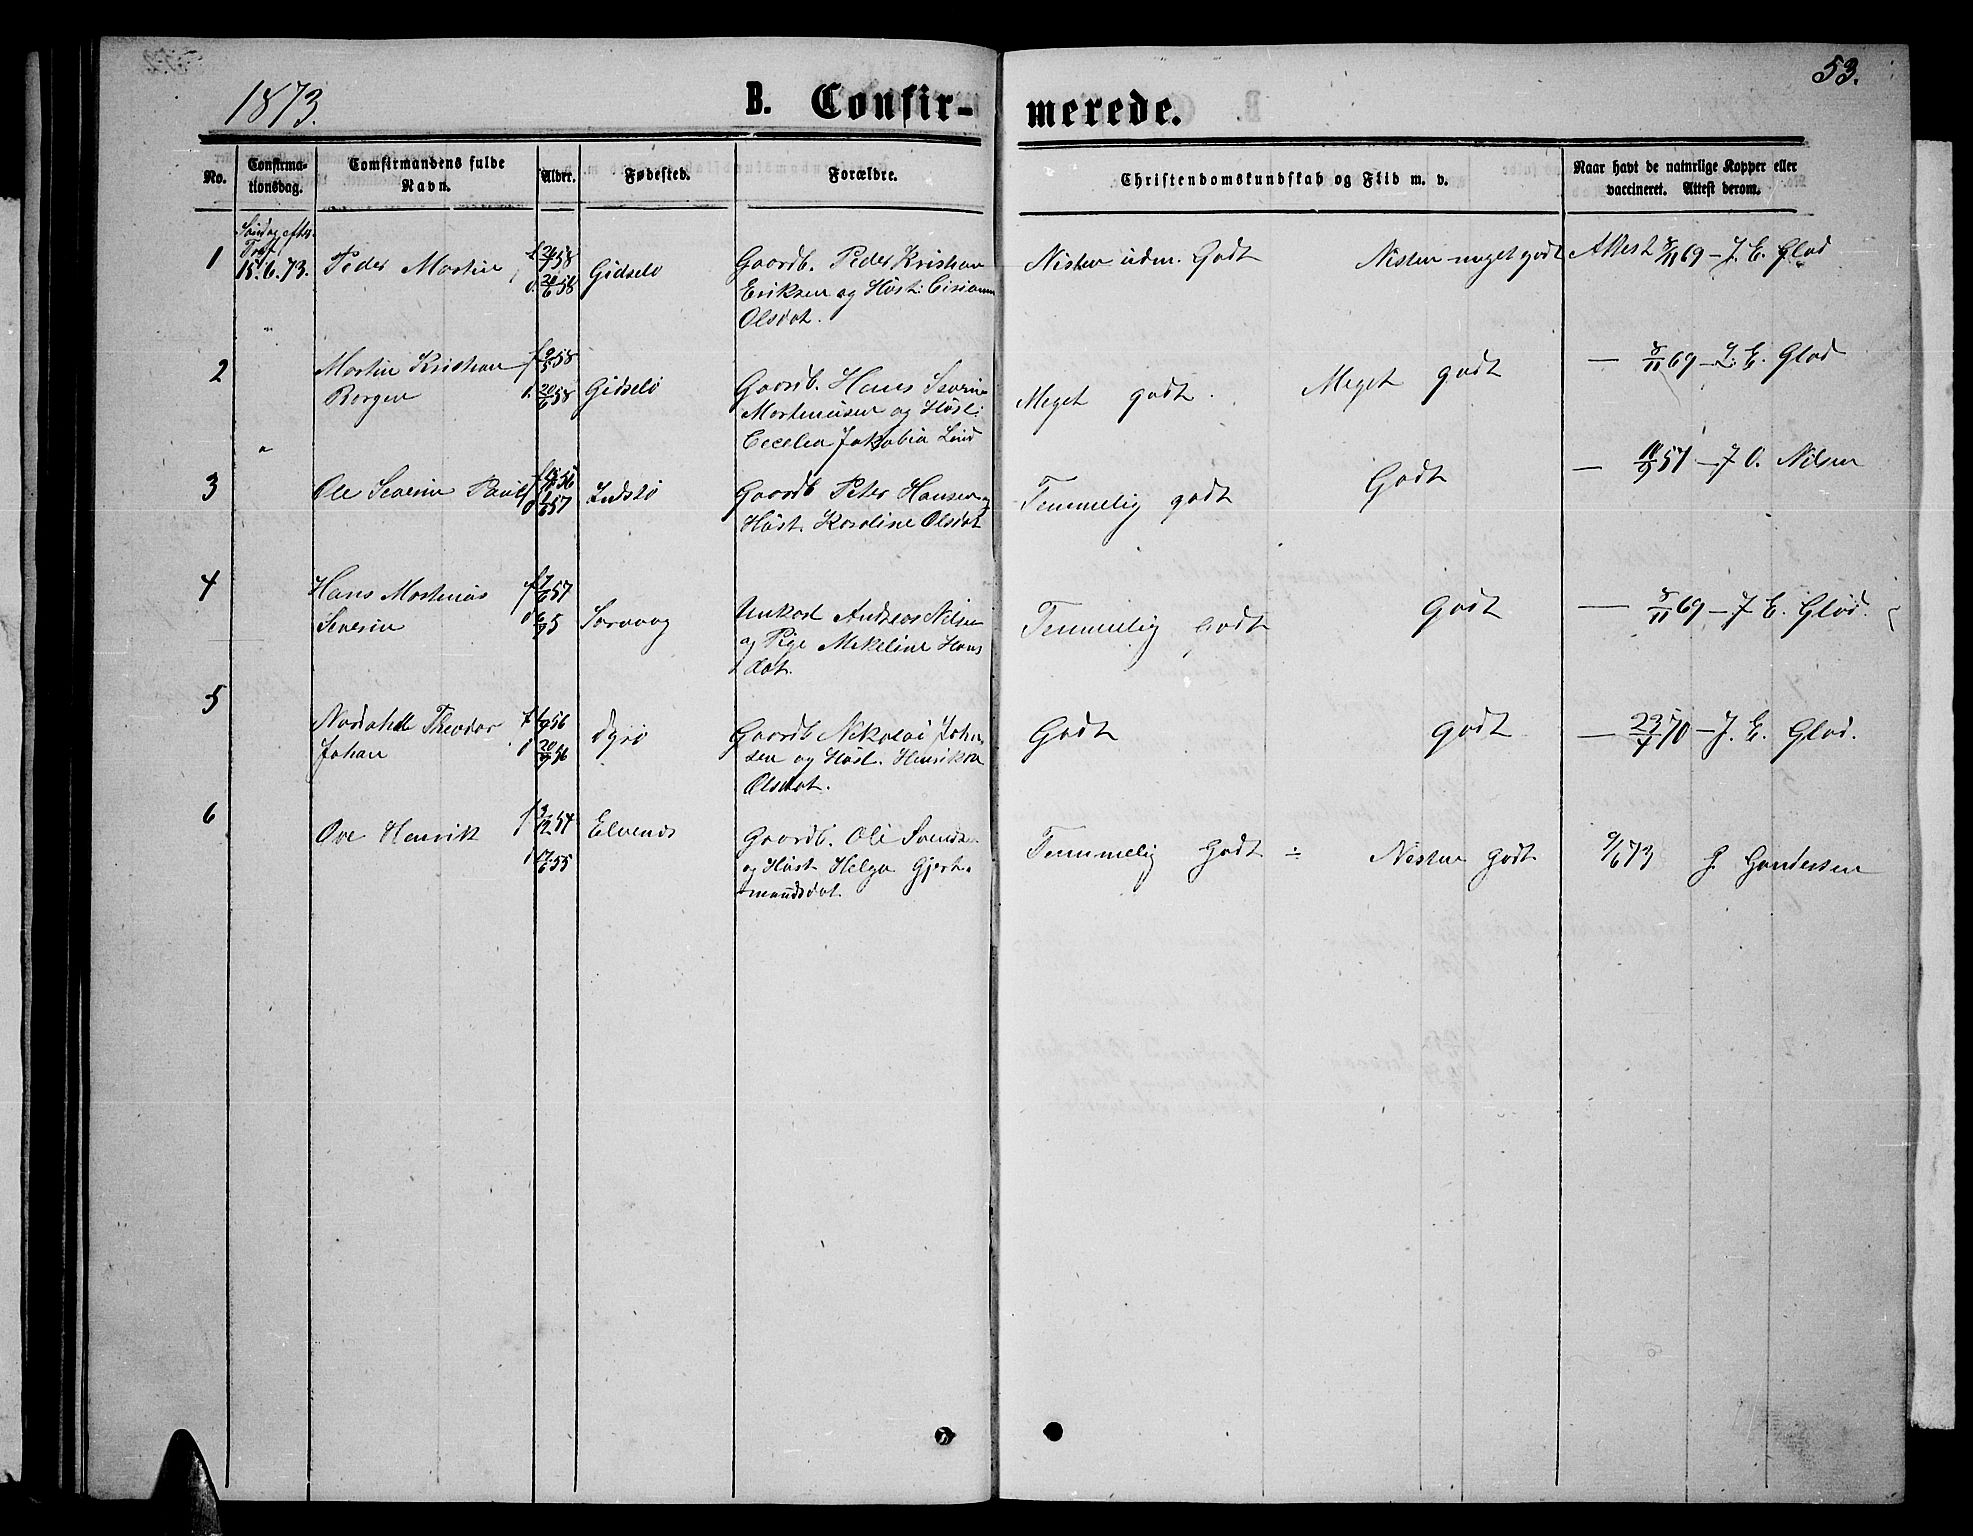 1873.
53.
B. Confir-merede.
No.
Confirma-
tionsdag.
Comfirmandens fulde
Navn.
Alder.
Fødested.
Forældre.
Christendomskundskab og Flid m. v.
Naar havt de naturlige Kopper eller
vaccineret. Attest derom.
1
Søndag efter
Tref.
15.6.73.
Peder Martin
Gidselø
Gaardb. Peder Kristian
Eriksen og Hust.
Olsdat.
Nesten udm. Godt
Nesten meget godt
Attest 8/11 69 – J. E. Glad
2
"
Martin Kristian
Borgen
f. 9/5 58
d. 20/6 58
Gidselø
Gaardb. Hans Severin
Morteniusen og Hust.
Cecelia Jakobia Lind
Meget godt.
Meget godt
— 8/11 69 – J. E. Glad
3
"
Ole Severin Paul
Gaardb Peter Hansen og
Hust. Karoline Olsdat
Temmelig godt
Godt
— 18/9 57 – J. O. Nilsen
4
Hans Martinus
Severin
Sørvaag
Unkarl Andreas Nilsen
og Pige Mekeline Hans
dat.
Temmelig Godt
Godt
— 8/11 69 – J. E. Glad.
5
Theodor
Johan
Dyrø
Gaardb Nikolai Johan
sen og Hust. Henrikka
Olsdat.
Godt
godt
— 23/7 70 – J. E. Glad.
6
Ove Henrik
f 3/12 54
d 17/6 55
Elvenes
Gaardb. Ole Svends
og Hust Helga Gjert
mundsdat.
Temmelig Godt ÷
Nesten godt
9/6 73